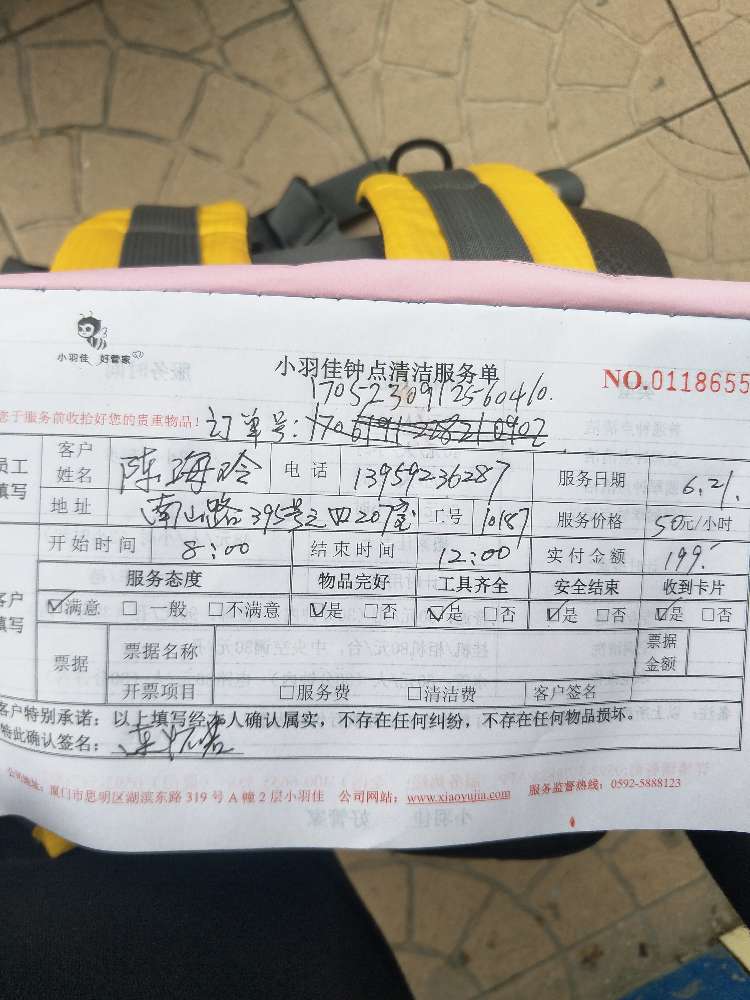 小羽佳 好管家
小羽佳钟点清洁服务单
NO.0118655
17052309112560410.
您于服务前收拾好您的贵重物品！ 订单号:
员工填写 客户姓名 陈海玲 电话 13959236287 服务日期 6.21.
地址 南山路395号之四207室 工号 10187 服务价格 50元/小时
开始时间 8:00 结束时间 12:00 实付金额 199.
客户填写 服务态度 物品完好 工具齐全 安全结束 收到卡片
☑满意 □一般 □不满意 ☑是 □否 ☑是 □否 ☑是 □否 ☑是 □否
票据 票据名称 票据金额
开票项目 □服务费 □清洁费 客户签名
客户特别承诺：以上填写经本人确认属实，不存在任何纠纷，不存在任何物品损坏。
特此确认签名：
公司地址：厦门市思明区湖滨东路319号A幢2层小羽佳 公司网站：www.xiaoyujia.com 服务监督热线：0592-5888123